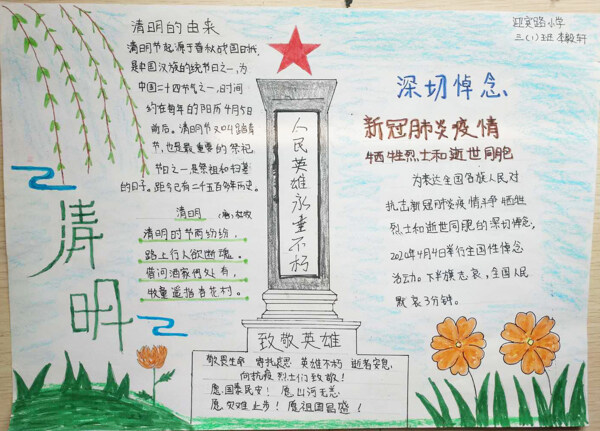 清明的由来
清明节起源于春秋战国时代,
是中国汉族的统节日之一,为
中国二十四节气之一,时间
约在每年的阳历4月5日
前后。清明节又叫踏青
节,也是最重要的祭祀
节日之一,是祭祖和扫墓
的日子。距今已有二千五百多年历史。
清明 (唐)杜牧
清明时节雨纷纷,
路上行人欲断魂。
借问酒家何处有,
牧童遥指杏花村。
清明
人民英雄永垂不朽
致敬英雄
敬畏生命 寄托哀思 英雄不朽 逝者安息
向抗疫烈士们致敬!
愿国泰民安! 愿山河无恙
愿灾难止步! 愿祖国昌盛!
迎宾路小学
三(1)班 李毅轩
深切悼念
新冠肺炎疫情
牺牲烈士和逝世同胞
为表达全国各族人民对
抗击新冠肺炎疫情斗争牺牲
烈士和逝世同胞的深切悼念,
2020年4月4日举行全国性悼念
活动。下半旗志哀,全国人民
默哀3分钟。